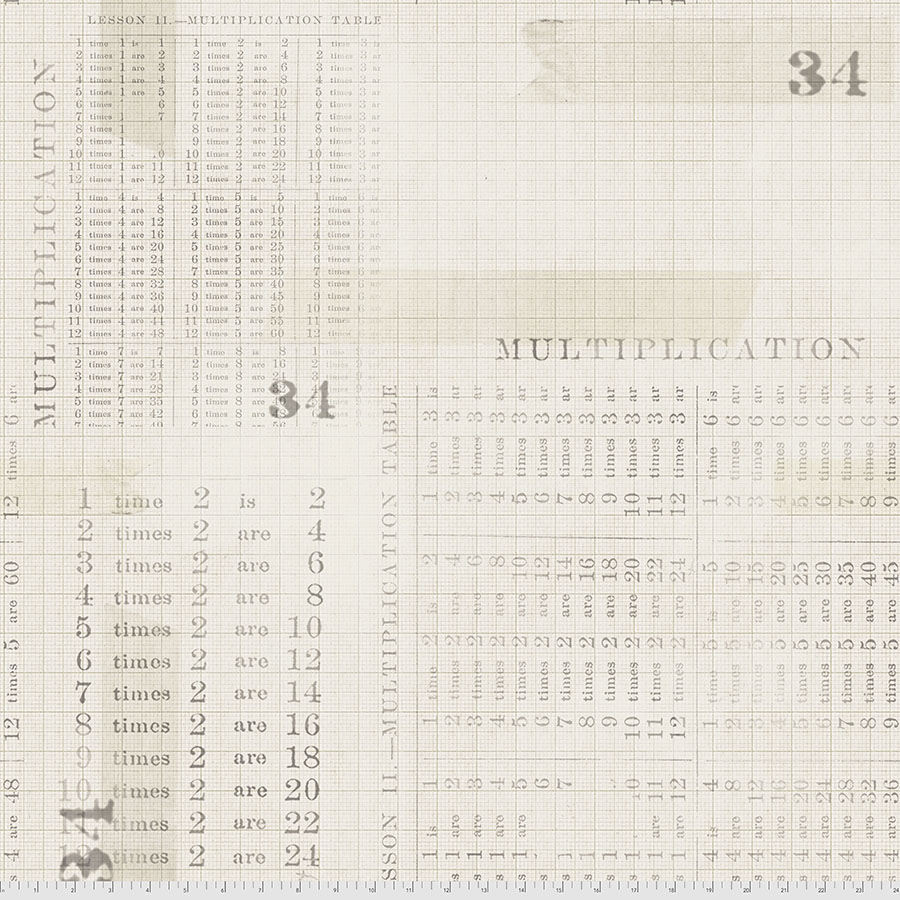 LESSON II.—MULTIPLICATION TABLE
1 time 1 is 1 1 time 2 is 2 1 time 3 is
2 times 1 are 2 2 times 2 are 4 2 times 3 ar
3 times 1 are 3 3 times 2 are 6 3 times 3 ar
4 times 1 are 4 4 times 2 are 8 4 times 3 ar
5 times 1 are 5 5 times 2 are 10 5 times 3 ar
6 times 6 6 times 2 are 12 6 times 3 ar
7 times 1 7 7 times 2 are 14 7 times 3 ar
8 times 1 8 times 2 are 16 8 times 3 ar
9 times 1 9 times 2 are 18 9 times 3 ar
10 times 1 10 times 2 are 20 10 times 3 ar
11 times 1 are 11 11 times 2 are 22 11 times 3 ar
12 times 1 are 12 12 times 2 are 24 12 times 3 ar
1 time 4 is 4 1 time 5 is 5 1 time 6 is
2 times 4 are 8 2 times 5 are 10 2 times 6
3 times 4 are 12 3 times 5 are 15 3 times 6
4 times 4 are 16 4 times 5 are 20 4 times 6
5 times 4 are 20 5 times 5 are 25 5 times 6
6 times 4 are 24 6 times 5 are 30 6 times 6
7 times 4 are 28 7 times 5 are 35 7 times 6
8 times 4 are 32 8 times 5 are 40 8 times 6
9 times 4 are 36 9 times 5 are 45 9 times 6
10 times 4 are 40 10 times 5 are 50 10 times
11 times 4 are 44 11 times 5 are 55 11 times
12 times 4 are 48 12 times 5 are 60 12 times
1 time 7 is 7 1 time 8 is 8 1 time
2 times 7 are 14 2 times 8 are 16 2 times
3 times 7 are 21 3 times 8 are 24 3
4 times 7 are 28 4 times 8 are
5 times 7 are 35 5 times 8 are
6 times 7 are 42 6 times 8 are
MULTIPLICATION
34
34
MULTIPLICATION
1 time 2 is 2
2 times 2 are 4
3 times 2 are 6
4 times 2 are 8
5 times 2 are 10
6 times 2 are 12
7 times 2 are 14
8 times 2 are 16
9 times 2 are 18
10 times 2 are 20
11 times 2 are 22
12 times 2 are 24
34
12 times 6 ar
12 times 5 are 60
s 4 are 48
SSON II.—MULTIPLICATION TABLE
1 is 1 1 time 2 is 2 1 time 3 is
s 1 are 2 2 times 2 are 4 2 times 3 ar
s 1 are 3 3 times 2 are 6 3 times 3 ar
s 1 are 4 4 times 2 are 8 4 times 3 ar
s 1 are 5 5 times 2 are 10 5 times 3 ar
6 6 times 2 are 12 6 times 3 ar
s 1 7 7 times 2 are 14 7 times 3 ar
s 1 8 times 2 are 16 8 times 3 ar
s 1 9 times 2 are 18 9 times 3 ar
s 1 10 10 times 2 are 20 10 times 3 ar
s 1 are 11 11 times 2 are 22 11 times 3 ar
s 1 are 12 12 times 2 are 24 12 times 3 ar
4 is 4 1 time 5 is 5 1 time 6 is
s 4 are 8 2 times 5 are 10 2 times 6 ar
s 4 are 12 3 times 5 are 15 3 times 6 ar
s 4 are 16 4 times 5 are 20 4 times 6 ar
s 4 are 20 5 times 5 are 25 5 times 6 ar
s 4 are 24 6 times 5 are 30 6 times 6 ar
s 4 are 28 7 times 5 are 35 7 times 6 ar
s 4 are 32 8 times 5 are 40 8 times 6 ar
s 4 are 36 9 times 5 are 45 9 times 6 ar
1 2 3 4 5 6 7 8 9 10 11 12 13 14 15 16 17 18 19 20 21 22 23 24